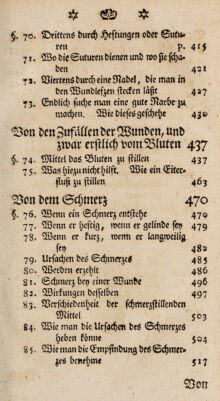 §. 70. Drittens durch Heftungen oder Sutu-
ren p. 415
71. Wo die Suturen dienen und wo sie scha-
den 421
72. Viertens durch eine Nadel, die man in
den Wundlefzen stecken läßt 427
73. Endlich suche man eine gute Narbe zu
machen. Wie dieses geschehe 430
Von den Zufällen der Wunden, und
zwar erstlich vom Bluten 437
§. 74. Mittel das Bluten zu stillen 437
75. Was hiezu nicht hilft. Wie ein Eiter-
fluß zu stillen 463
Von dem Schmerz 470
§. 76. Wenn ein Schmerz entstehe 479
77. Wenn er heftig, wenn er gelinde sey 479
78. Wenn er kurz, wenn er langweilig
sey 482
79. Ursachen des Schmerzes 485
80. Werden erzehlt 486
81. Schmerz bey einer Wunde 496
82. Wirkungen desselben 497
83. Verschiedenheit der schmerzstillenden
Mittel 503
84. Wie man die Ursachen des Schmerzes
heben könne 504
85. Wie man die Empfindung des Schmer-
zes benehme 517
Von